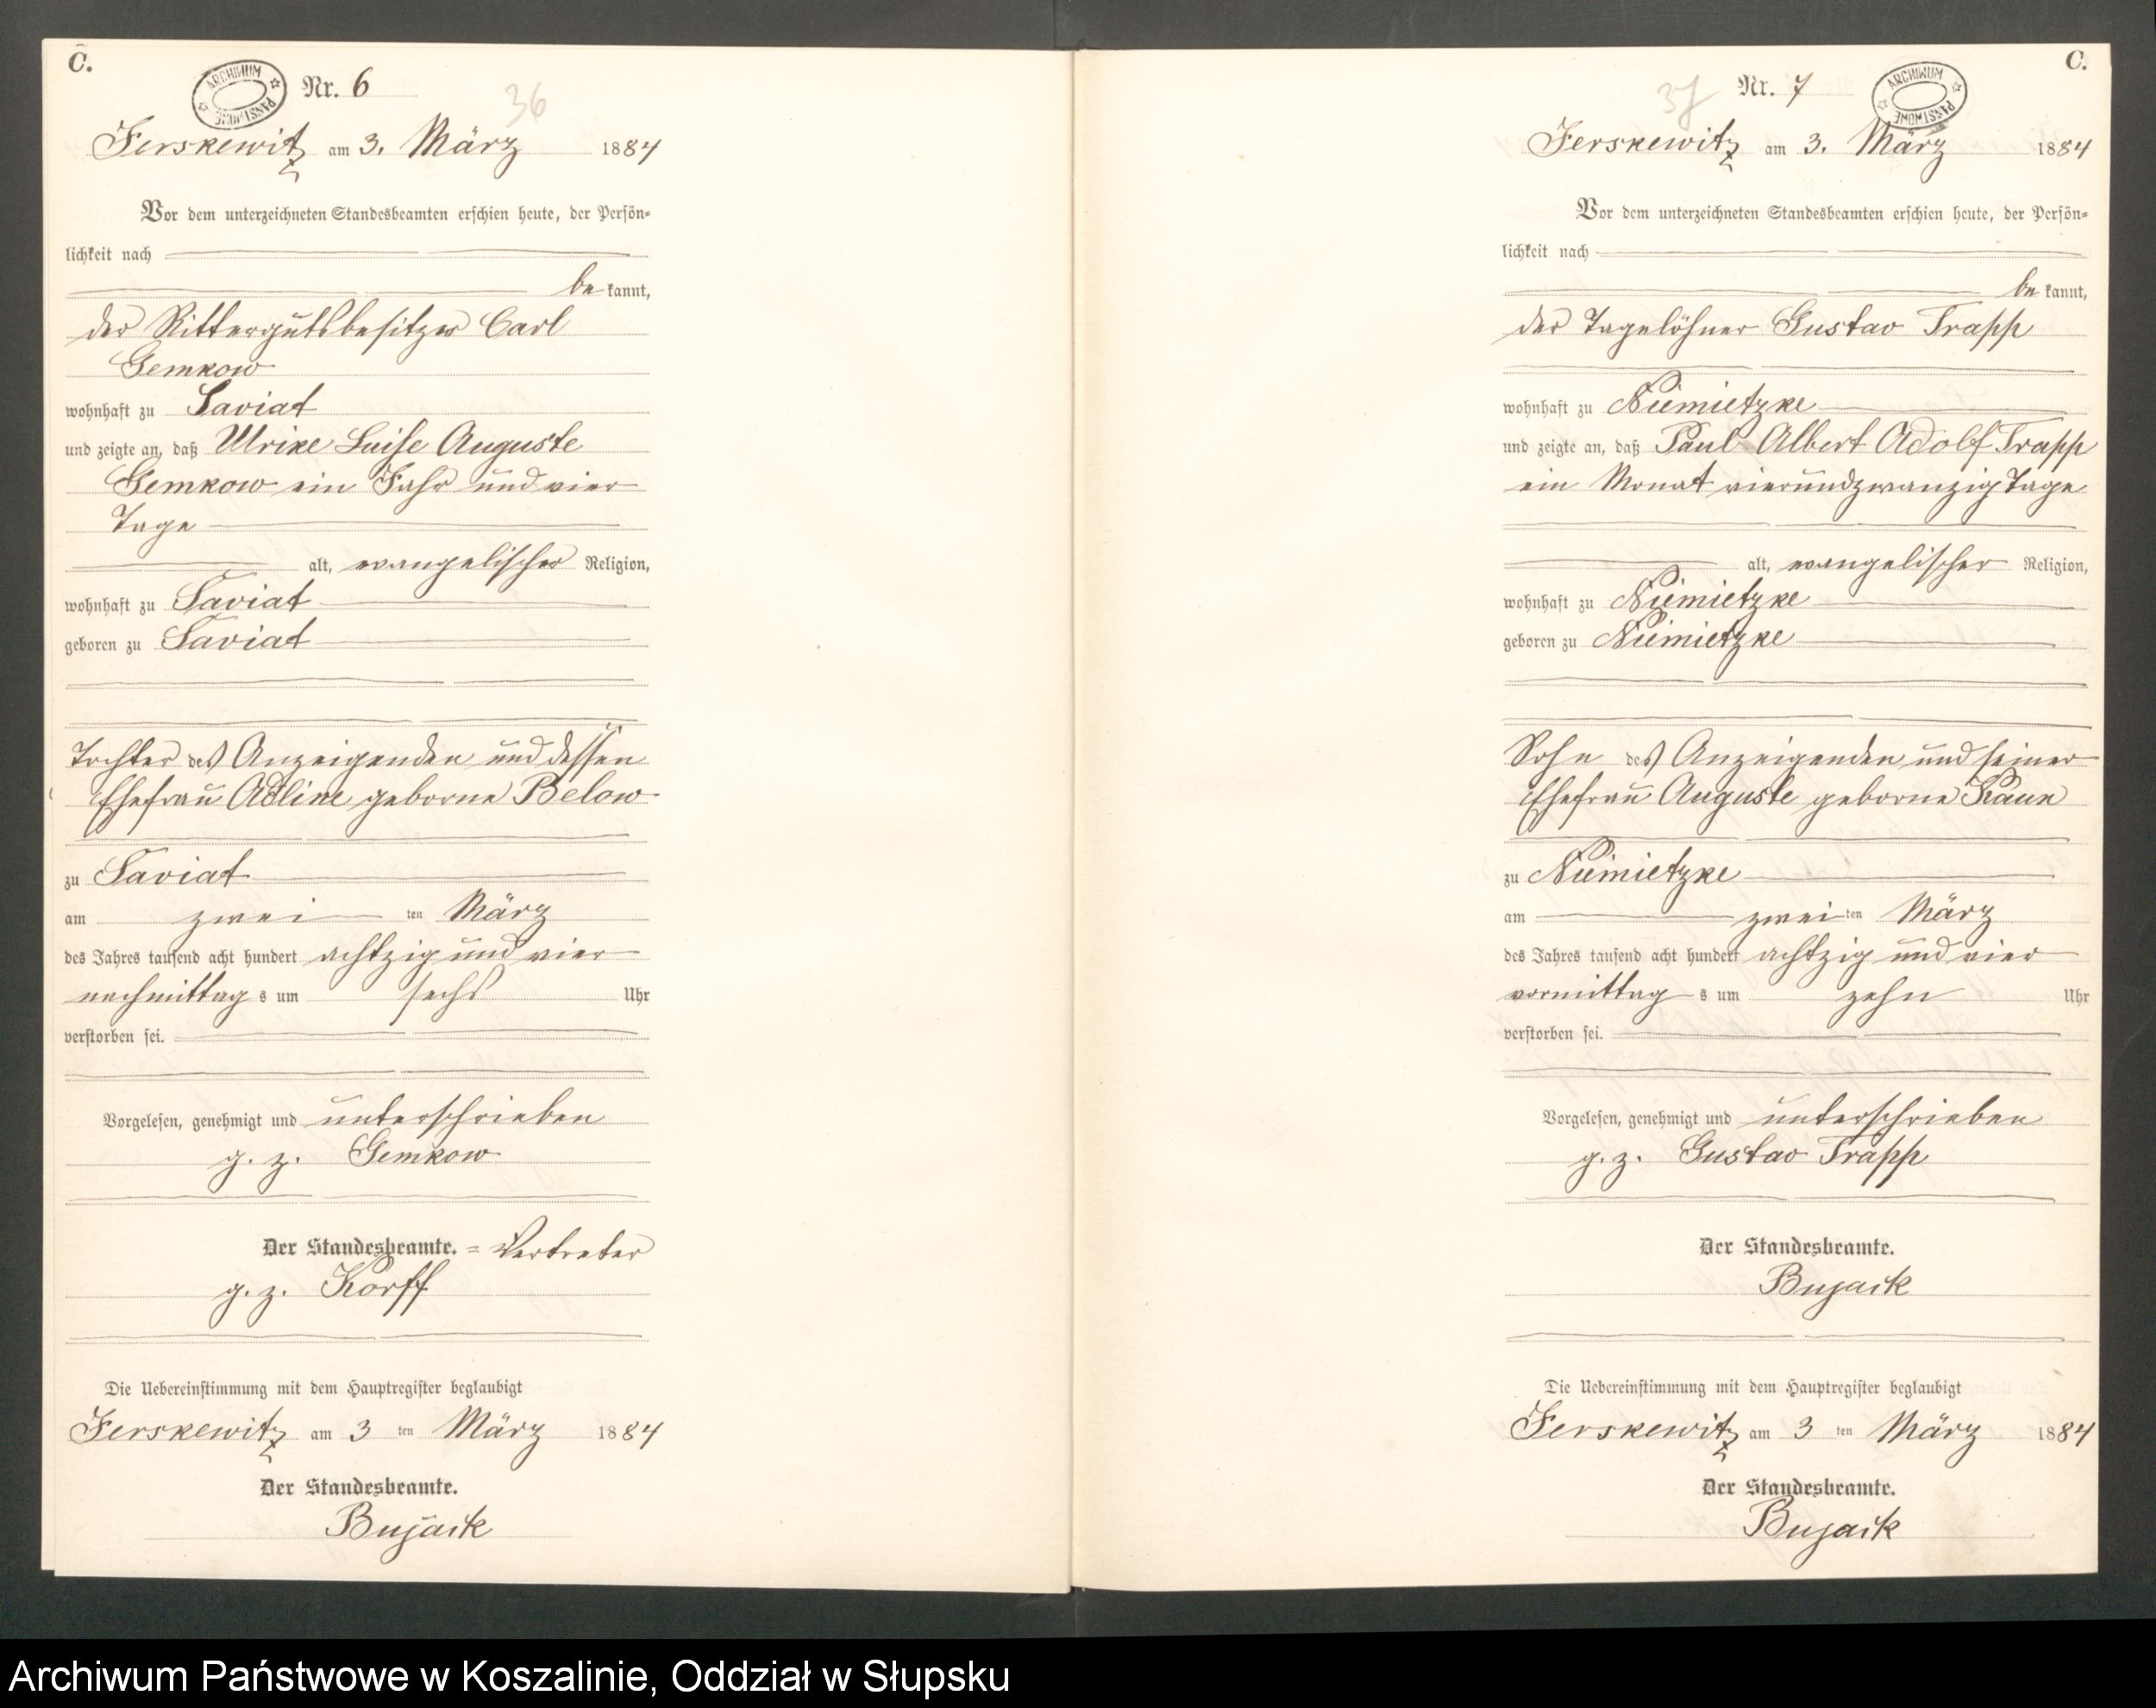 C.
ARCHIWUM PAŃSTWOWE
Nr. 6
36
Jerskewitz am 3. März 1884
Vor dem unterzeichneten Standesbeamten erschien heute, der Persön-
lichkeit nach
be kannt,
der Rittergutsbesitzer Carl
Gemkow
wohnhaft zu Saviat
und zeigte an, daß Ulrike Luise Auguste
Gemkow ein Jahr und vier
Tage
alt, evangelischer Religion,
wohnhaft zu Saviat
geboren zu Saviat
Tochter des Anzeigenden und dessen
Ehefrau Adline geborne Below
zu Saviat
am zwei ten März
des Jahres tausend acht hundert achtzig und vier
nachmittag s um sechs Uhr
verstorben sei.
Vorgelesen, genehmigt und unterschrieben
g. z. Gemkow
Der Standesbeamte. = Vertreter
g. z. Korff
Die Uebereinstimmung mit dem Hauptregister beglaubigt
Jerskewitz am 3 ten März 1884
Der Standesbeamte.
Bujack
C.
Nr. 7
ARCHIWUM PAŃSTWOWE
37
Jerskewitz am 3. März 1884
Vor dem unterzeichneten Standesbeamten erschien heute, der Persön-
lichkeit nach
be kannt,
der Tagelöhner Gustav Trapp
wohnhaft zu Niemietzke
und zeigte an, daß Paul Albert Adolf Trapp
ein Monat vierundzwanzig Tage
alt, evangelischer Religion,
wohnhaft zu Niemietzke
geboren zu Niemietzke
Sohn des Anzeigenden und seiner
Ehefrau Auguste geborne Kaun
zu Niemietzke
am zwei ten März
des Jahres tausend acht hundert achtzig und vier
vormittag s um zehn Uhr
verstorben sei.
Vorgelesen, genehmigt und unterschrieben
g. z. Gustav Trapp
Der Standesbeamte.
Bujack
Die Uebereinstimmung mit dem Hauptregister beglaubigt
Jerskewitz am 3 ten März 1884
Der Standesbeamte.
Bujack
Archiwum Państwowe w Koszalinie, Oddział w Słupsku